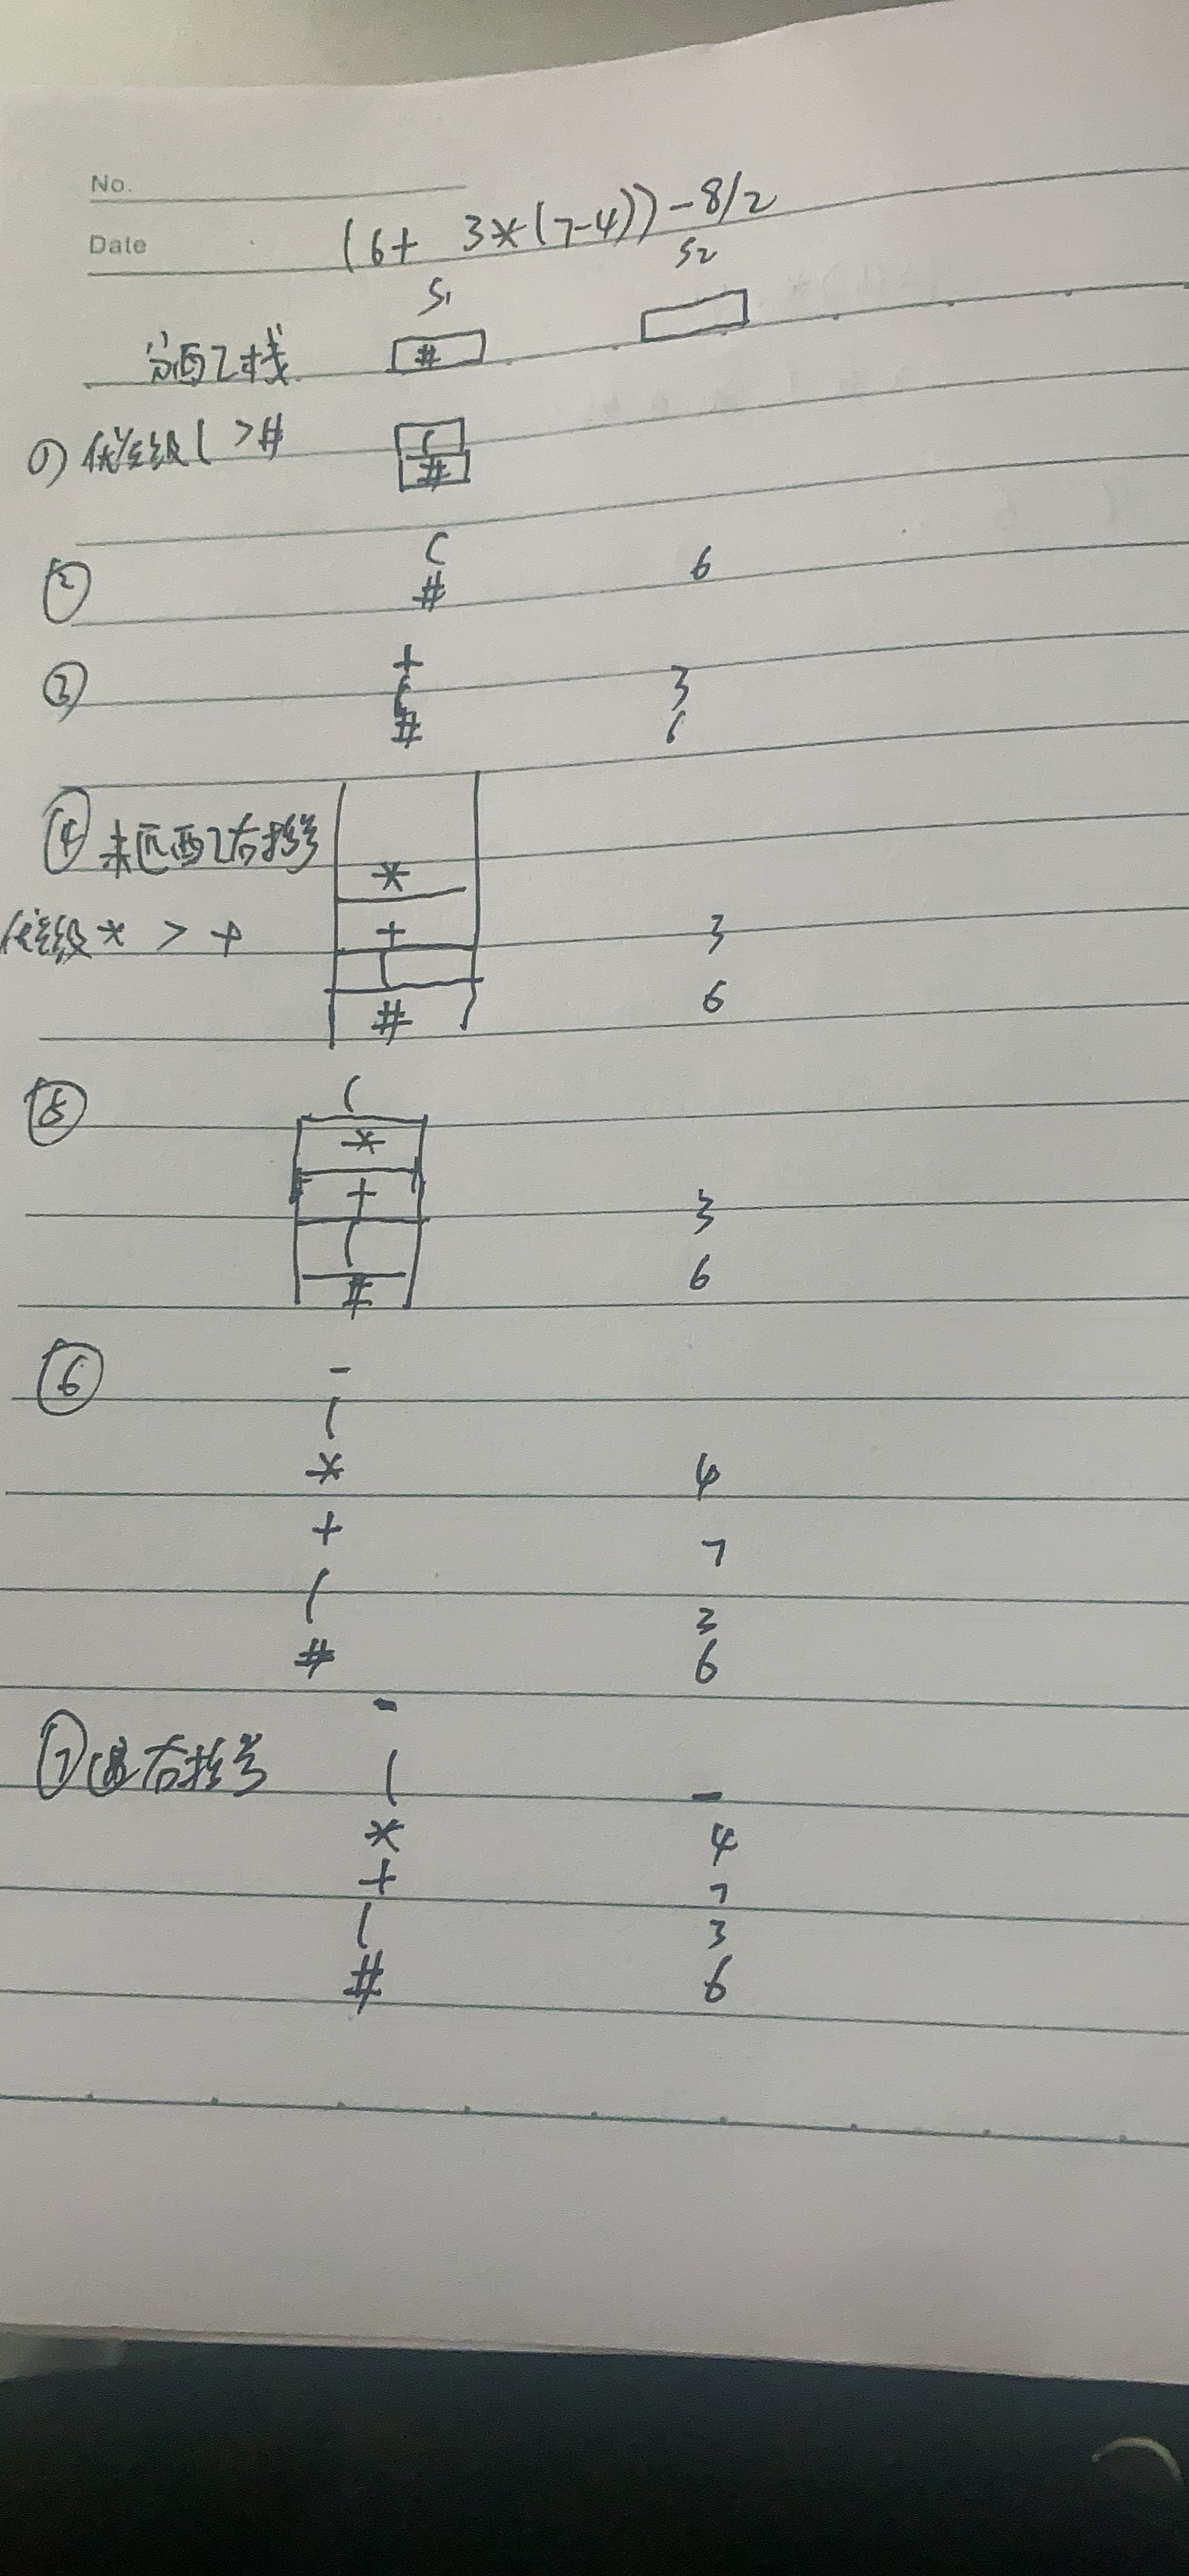 No.
Date
(6+ 3*(7-4))-8/2
S1 S2
分配2栈 #
① 优先级( >#
(
#
②
(
#
6
③
+
(
#
3
6
④ 未匹配右括号
优先级 * > +
*
+
(
#
3
6
⑤
(
*
+
(
#
3
6
⑥
-
(
*
+
(
#
4
7
3
6
⑦ 遇右括号
-
(
*
+
(
#
-
4
7
3
6